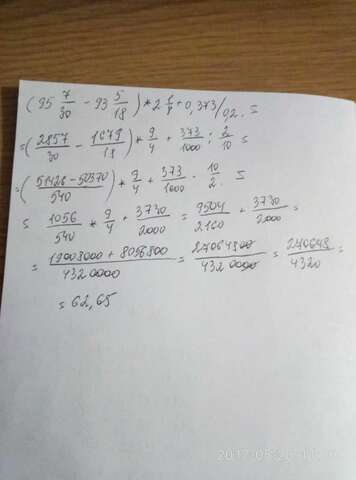 (95 7/30 - 93 5/18) * 2 1/4 + 0,373/0,2 =
= (2857/30 - 1679/18) * 9/4 + 373/1000 : 2/10 =
= (51426 - 50370/540) * 9/4 + 373/1000 · 10/2 =
= 1056/540 * 9/4 + 3730/2000 = 9504/2160 + 3730/2000 =
= 19008000 + 8056800/4320000 = 27064800/4320000 = 270648/4320 =
= 62,65